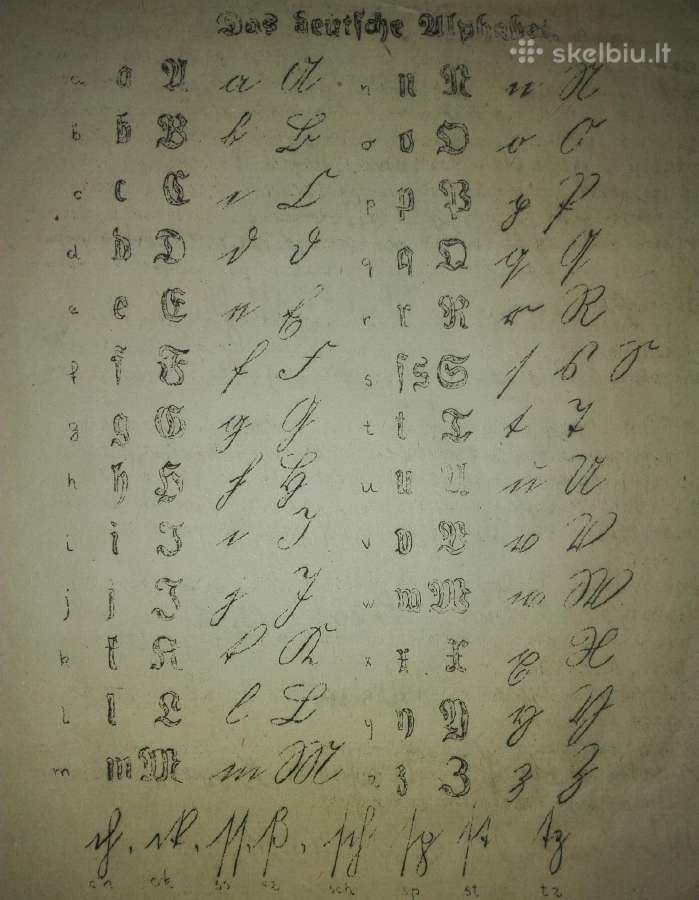 Das deutsche Alphabet.
skelbiu.lt
a a A a A n n N n N
b b B b B o o O o O
c c C c C p p P p P
d d D d D q q Q q Q
e e E e E r r R r R
f f F f F s ſ s S ſ s S
g g G g G t t T t T
h h H h H u u U u U
i i I i I v v V v V
j j J j J w w W w W
k k K k K x x X x X
l l L l L y y Y y Y
m m M m M z z Z z Z
ch. ck. ſſ. ß. ſch ſp ſt tz
ch ck ss sz sch sp st tz